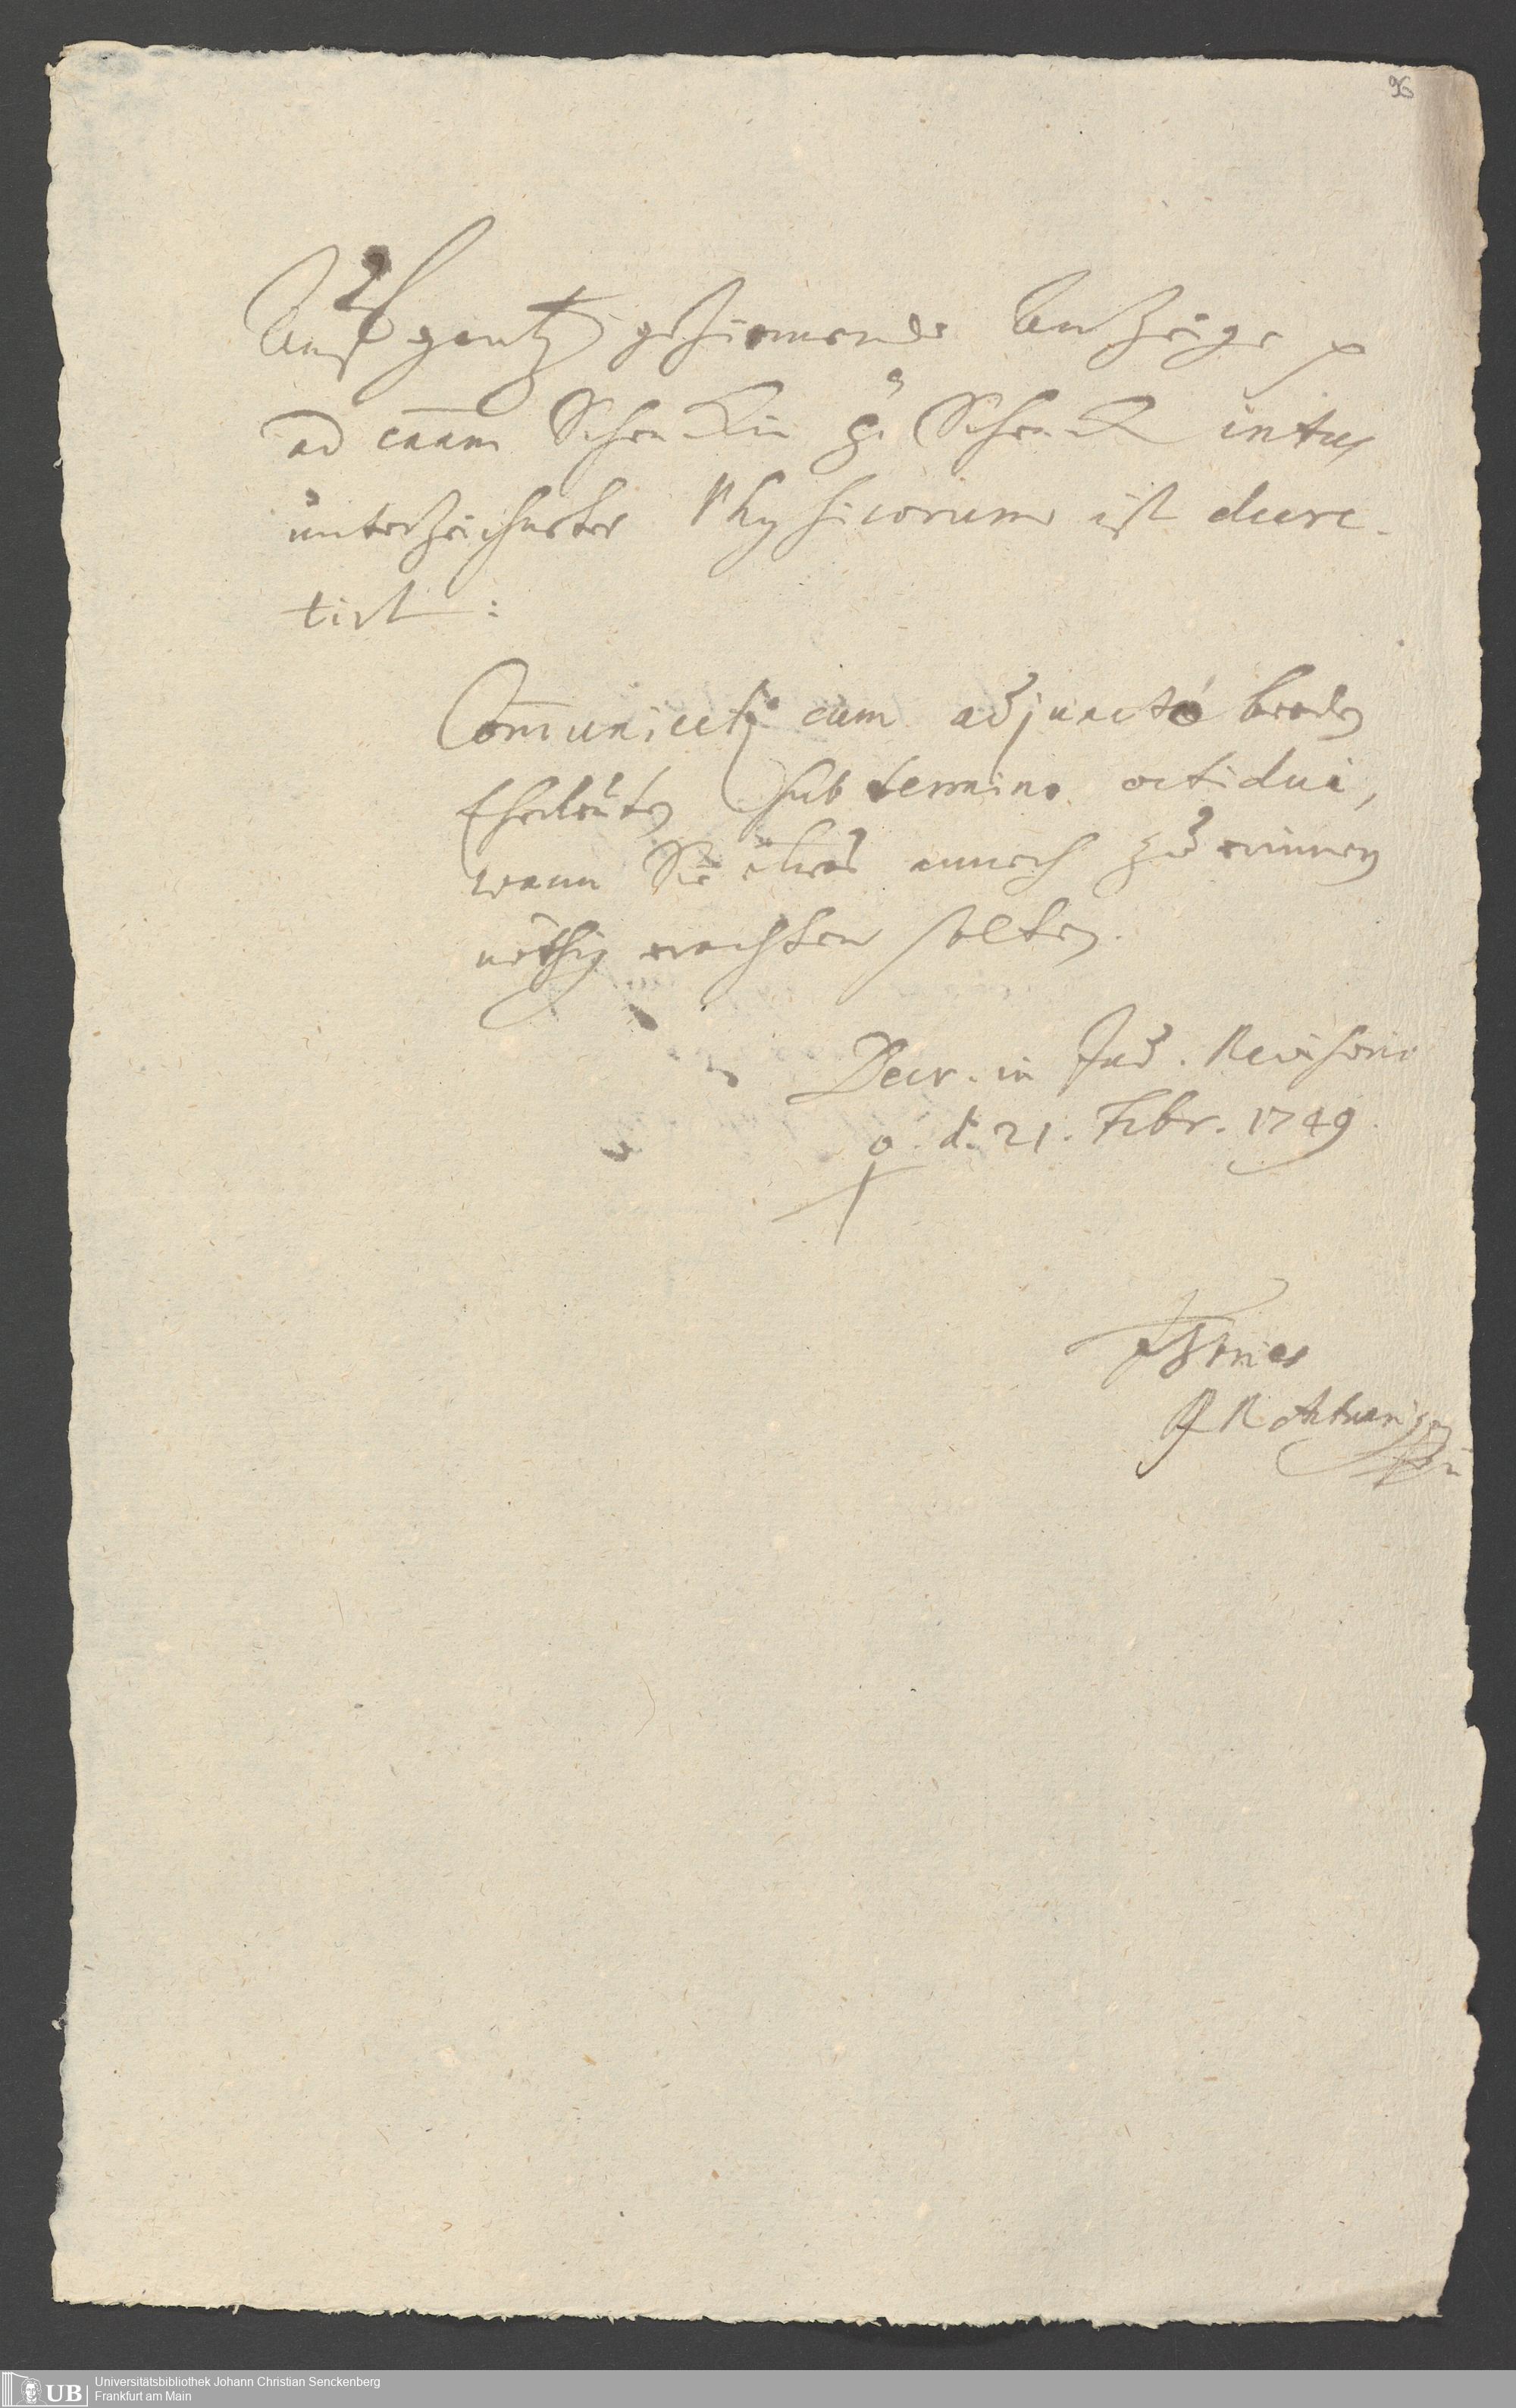 96
Auf gantz geziemende Anzeige
ad caam Schenckin ca Schenck intus
unterzeichneter Physicorum ist decre-
tirt:
Com̄unicetur cum adjuncto beeden
Eheleuten sub termino octidui,
wann Sie etwas annoch zu erinnern
nöthig erachten solten.
Decr. in Jud. Revisorio
d. 21. Febr. 1749.
Actuari
UB Universitätsbibliothek Johann Christian Senckenberg
Frankfurt am Main